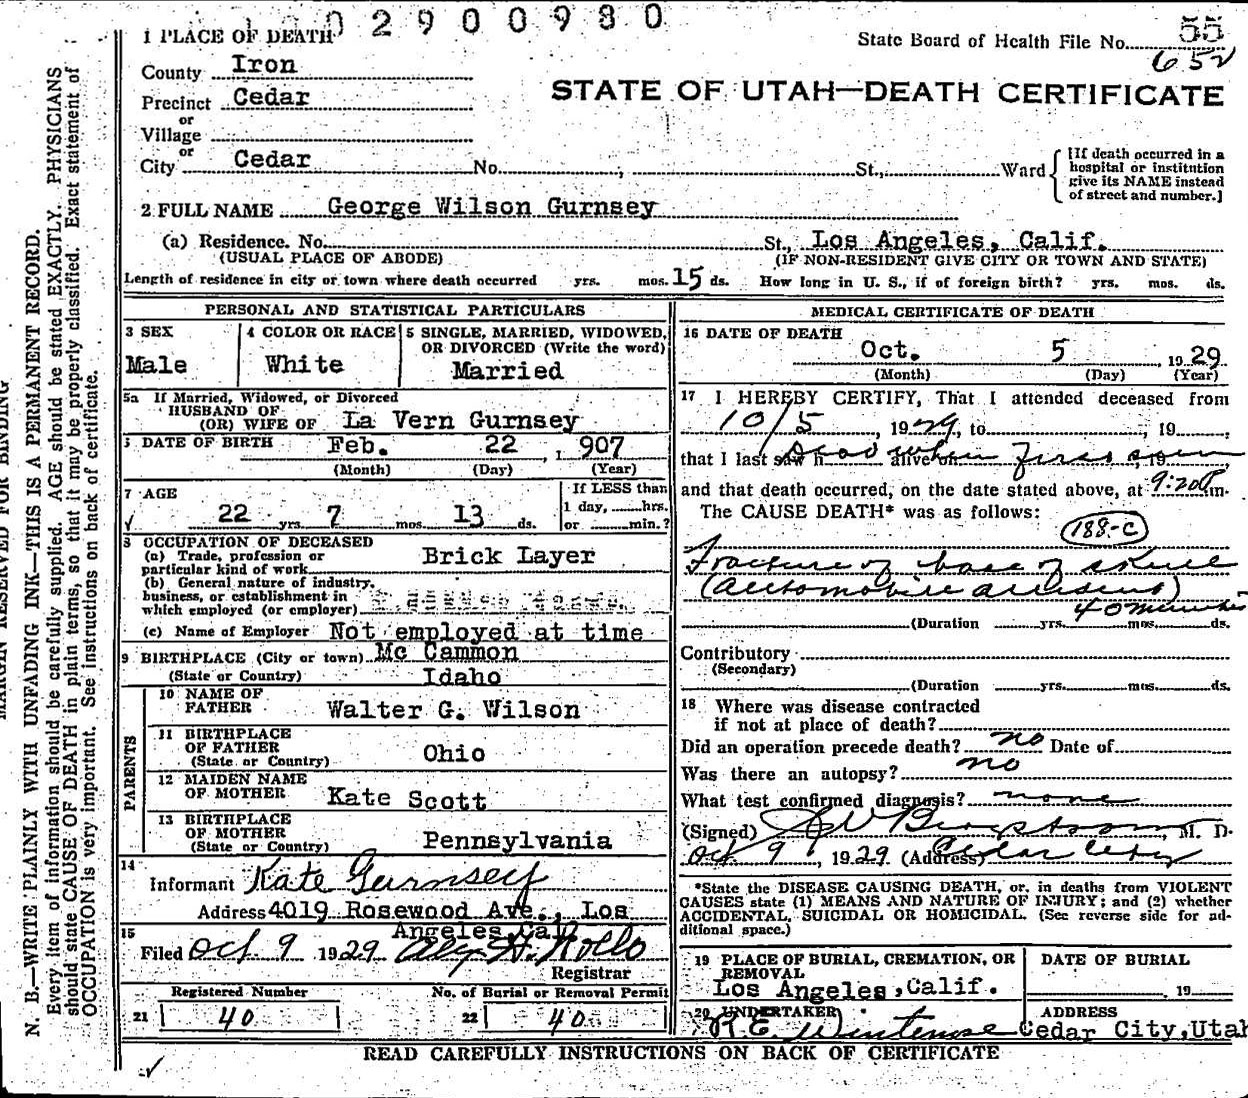 02900980
55
State Board of Health File No. 652
1 PLACE OF DEATH
County Iron
Precinct Cedar
STATE OF UTAH—DEATH CERTIFICATE
or
Village
or
City Cedar No. , St., Ward
[If death occurred in a
hospital or institution
give its NAME instead
of street and number.]
2 FULL NAME George Wilson Gurnsey
(a) Residence. No. St., Los Angeles, Calif.
(USUAL PLACE OF ABODE) (IF NON-RESIDENT GIVE CITY OR TOWN AND STATE)
Length of residence in city or town where death occurred yrs. mos. 15 ds. How long in U. S., if of foreign birth? yrs. mos. ds.
PERSONAL AND STATISTICAL PARTICULARS
3 SEX
Male
4 COLOR OR RACE
White
5 SINGLE, MARRIED, WIDOWED,
OR DIVORCED (Write the word)
Married
5a If Married, Widowed, or Divorced
HUSBAND OF
(OR) WIFE OF La Vern Gurnsey
DATE OF BIRTH Feb. 22 , 1907
(Month) (Day) (Year)
7 AGE
22 yrs. 7 mos. 13 ds.
If LESS than
1 day, hrs.
or min.?
8 OCCUPATION OF DECEASED
(a) Trade, profession or
particular kind of work Brick Layer
(b) General nature of industry,
business, or establishment in
which employed (or employer)
(c) Name of Employer Not employed at time
9 BIRTHPLACE (City or town) Mc Cammon
(State or Country) Idaho
PARENTS
10 NAME OF
FATHER Walter G. Wilson
11 BIRTHPLACE
OF FATHER
(State or Country) Ohio
12 MAIDEN NAME
OF MOTHER Kate Scott
13 BIRTHPLACE
OF MOTHER
(State or Country) Pennsylvania
14
Informant Kate Gurnsey
Address 4019 Rosewood Ave., Los
Angeles, Cal
15
Filed Oct 9 1929 H. Rollo
Registrar
Registered Number
21 40
No. of Burial or Removal Permit
22 40
MEDICAL CERTIFICATE OF DEATH
16 DATE OF DEATH
Oct. 5 , 1929
(Month) (Day) (Year)
17 I HEREBY CERTIFY, That I attended deceased from
10/5 , 1929, to , 19 ,
that I last saw h alive on , 19
dead when first seen
and that death occurred, on the date stated above, at 9:20P m.
The CAUSE DEATH* was as follows:
188-c
Fracture of base of skull
(automobile accident)
40 minutes
(Duration yrs. mos. ds.
Contributory
(Secondary)
(Duration yrs. mos. ds.
18 Where was disease contracted
if not at place of death?
Did an operation precede death? no Date of
Was there an autopsy? no
What test confirmed diagnosis? none
(Signed) M. D.
Oct 9 , 1929 (Address) Cedar City
*State the DISEASE CAUSING DEATH, or, in deaths from VIOLENT
CAUSES state (1) MEANS AND NATURE OF INJURY; and (2) whether
ACCIDENTAL, SUICIDAL OR HOMICIDAL. (See reverse side for ad-
ditional space.)
19 PLACE OF BURIAL, CREMATION, OR
REMOVAL
Los Angeles, Calif.
DATE OF BURIAL
, 19
20 UNDERTAKER
R.E.
ADDRESS
Cedar City, Utah
READ CAREFULLY INSTRUCTIONS ON BACK OF CERTIFICATE
MARGIN RESERVED FOR BINDING
N. B.—WRITE PLAINLY WITH UNFADING INK—THIS IS A PERMANENT RECORD.
Every item of information should be carefully supplied. AGE should be stated EXACTLY. PHYSICIANS
should state CAUSE OF DEATH in plain terms, so that it may be properly classified. Exact statement of
OCCUPATION is very important. See instructions on back of certificate.